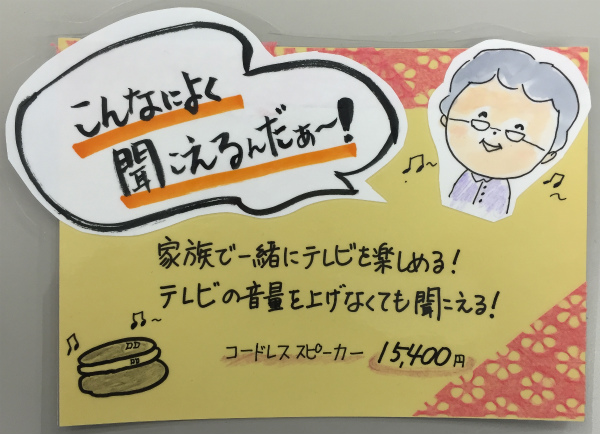 こんなによく
聞こえるんだぁ〜!
家族で一緒にテレビを楽しめる!
テレビの音量を上げなくても聞こえる!
コードレススピーカー 15,400円